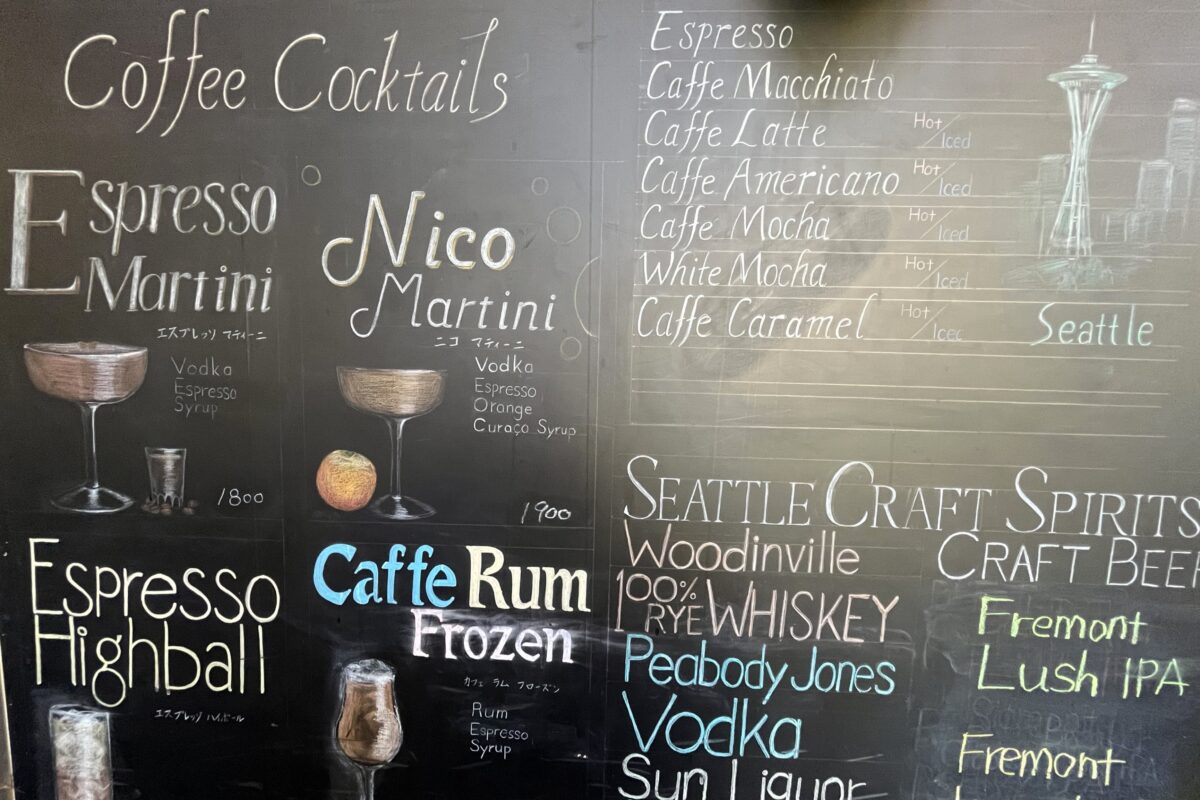 Coffee Cocktails
Espresso
Martini
エスプレッソ マティーニ
Vodka
Espresso
Syrup
1800
Nico
Martini
ニコ マティーニ
Vodka
Espresso
Orange
Curaço Syrup
1900
Espresso
Highball
エスプレッソ ハイボール
Caffe Rum
Frozen
カフェ ラム フローズン
Rum
Espresso
Syrup
Espresso
Caffe Macchiato
Caffe Latte Hot/Iced
Caffe Americano Hot/Iced
Caffe Mocha Hot/Iced
White Mocha Hot/Iced
Caffe Caramel Hot/Iced
Seattle
SEATTLE CRAFT SPIRITS
Woodinville
100%
RYE WHISKEY
Peabody Jones
Vodka
Sun Liquor
CRAFT BEER
Fremont
Lush IPA
Fremont